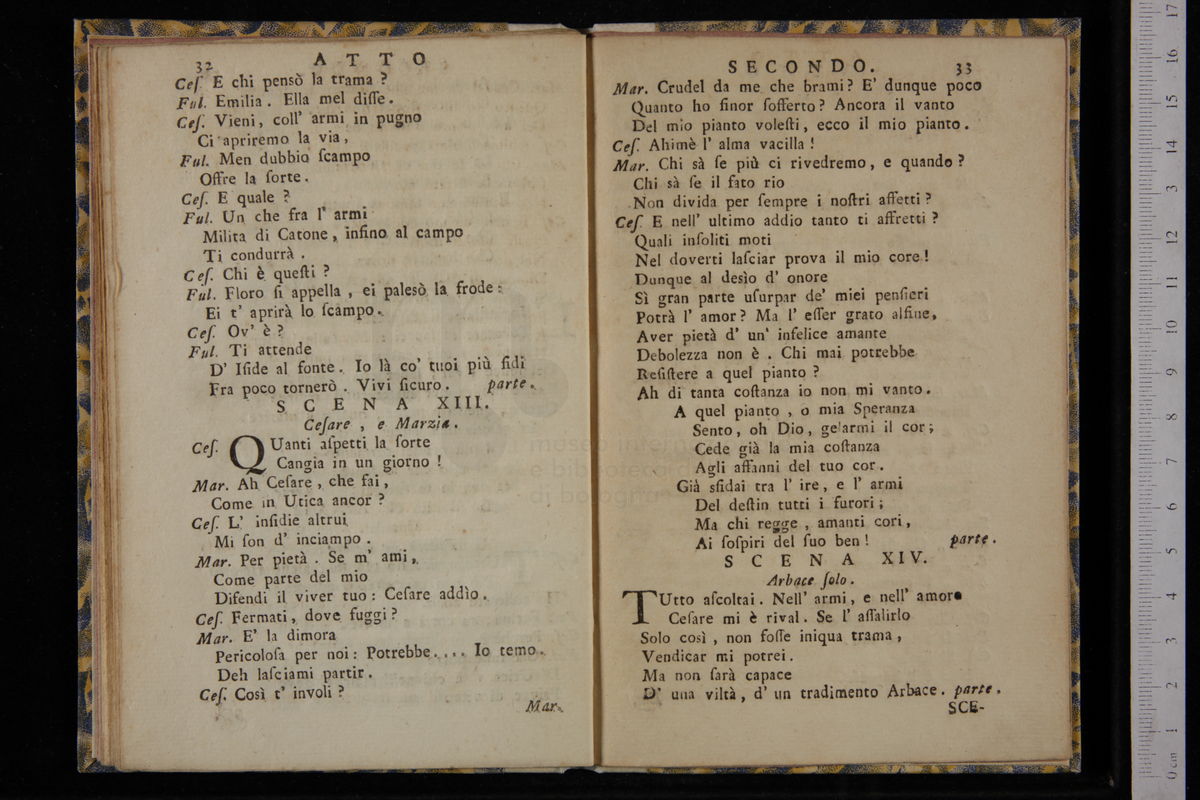 32 ATTO
Ceſ. E chi pensò la trama ?
Ful. Emilia . Ella mel diſſe .
Ceſ. Vieni, coll' armi in pugno
Ci apriremo la via,
Ful. Men dubbio ſcampo
Offre la ſorte .
Ceſ. E quale ?
Ful. Un che fra l' armi
Milita di Catone , infino al campo
Ti condurrà .
Ceſ. Chi è queſti ?
Ful. Floro ſi appella , ei palesò la frode :
Ei t' aprirà lo ſcampo .
Ceſ. Ov' è ?
Ful. Ti attende
D' Iſide al fonte . Io là co' tuoi più fidi
Fra poco tornerò . Vivi ſicuro . parte .
SCENA XIII.
Ceſare , e Marzia .
Ceſ. QUanti aſpetti la ſorte
Cangia in un giorno !
Mar. Ah Ceſare , che fai ,
Come in Utica ancor ?
Ceſ. L' inſidie altrui
Mi ſon d' inciampo .
Mar. Per pietà . Se m' ami ,
Come parte del mio
Difendi il viver tuo : Ceſare addìo .
Ceſ. Fermati , dove fuggi ?
Mar. E' la dimora
Pericoloſa per noi : Potrebbe .... Io temo .
Deh laſciami partir .
Ceſ. Così t' involi ?
Mar.
SECONDO. 33
Mar. Crudel da me che brami ? E' dunque poco
Quanto ho ſinor ſofferto ? Ancora il vanto
Del mio pianto voleſti , ecco il mio pianto .
Ceſ. Ahimè l' alma vacilla !
Mar. Chi sà ſe più ci rivedremo , e quando ?
Chi sà ſe il fato rio
Non divida per ſempre i noſtri affetti ?
Ceſ. E nell' ultimo addio tanto ti affretti ?
Quali inſoliti moti
Nel doverti laſciar prova il mio core !
Dunque al desìo d' onore
Sì gran parte uſurpar de' miei penſieri
Potrà l' amor ? Ma l' eſſer grato alfine ,
Aver pietà d' un' infelice amante
Debolezza non è . Chi mai potrebbe
Reſiſtere a quel pianto ?
Ah di tanta coſtanza io non mi vanto .
A quel pianto , o mia Speranza
Sento , oh Dio , gelarmi il cor ;
Cede già la mia coſtanza
Agli affanni del tuo cor .
Già sfidai tra l' ire , e l' armi
Del deſtin tutti i furori ;
Ma chi regge , amanti cori ,
Ai ſoſpiri del ſuo ben ! parte .
SCENA XIV.
Arbace ſolo .
TUtto aſcoltai . Nell' armi , e nell' amore
Ceſare mi è rival . Se l' aſſalirlo
Solo così , non foſſe iniqua trama ,
Vendicar mi potrei .
Ma non ſarà capace
D' una viltà , d' un tradimento Arbace . parte .
SCE-